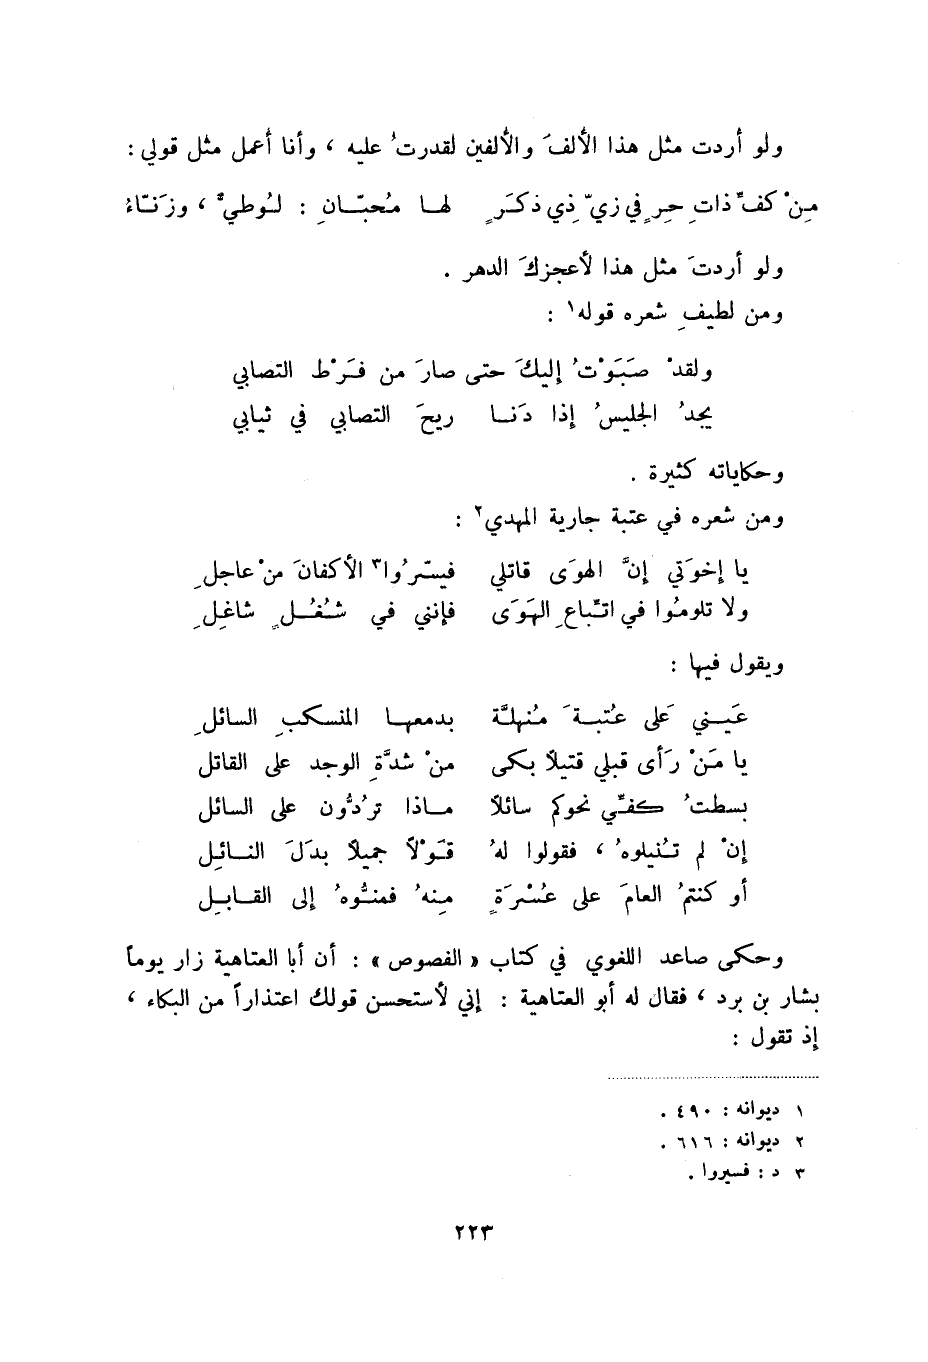 ولو أردت مثل هذا الألفَ والألفين لقدرتُ عليه ، وأنا أعمل مثل قولي :
مِنْ كفِّ ذاتِ حِرٍ في زيِّ ذي ذكَرٍ لهـا محُبّـانِ : لُوطيٌّ ، وزَنّاءُ
ولو أردتَ مثل هذا لأعجزكَ الدهر .
ومن لطيفِ شعره قوله١ :
ولقدْ صَبَوْتُ إليكَ حتى صارَ من فَرْط التصابي
يجدُ الجليسُ إذا دَنـا ريحَ التصابي في ثيابي
وحكاياته كثيرة .
ومن شعره في عتبة جارية المهدي٢ :
يا إخوَتي إنَّ الهوَى قاتلي فيسّرُوا٣ الأكفانَ منْ عاجلِ
ولا تلومُوا في اتّباعِ الهَوَى فإنني في شُغُلٍ شاغِلِ
ويقول فيها :
عَيني عَلى عُتبةَ مُنهلَّة بدمعهـا المنسكبِ السائلِ
يا مَنْ رَأى قبلي قتيلاً بكى منْ شدَّةِ الوجد على القاتل
بسطتُ كفّي نحوكم سائلاً مـاذا ترُدُّون على السائل
إنْ لم تُنيلوهُ ، فقولوا لهُ قَوْلاً جميلاً بدَلَ النـائِل
أو كنتمُ العامَ على عُسْرَةٍ مِنهُ فمنُّوهُ إلى القـابِل
وحكى صاعد اللغوي في كتاب « الفصوص » : أن أبا العتاهية زار يوماً
بشار بن برد ، فقال له أبو العتاهية : إني لأستحسن قولك اعتذاراً من البكاء ،
إذ تقول :
١ ديوانه : ٤٩٠ .
٢ ديوانه : ٦١٦ .
٣ د : فسيروا .
٢٢٣